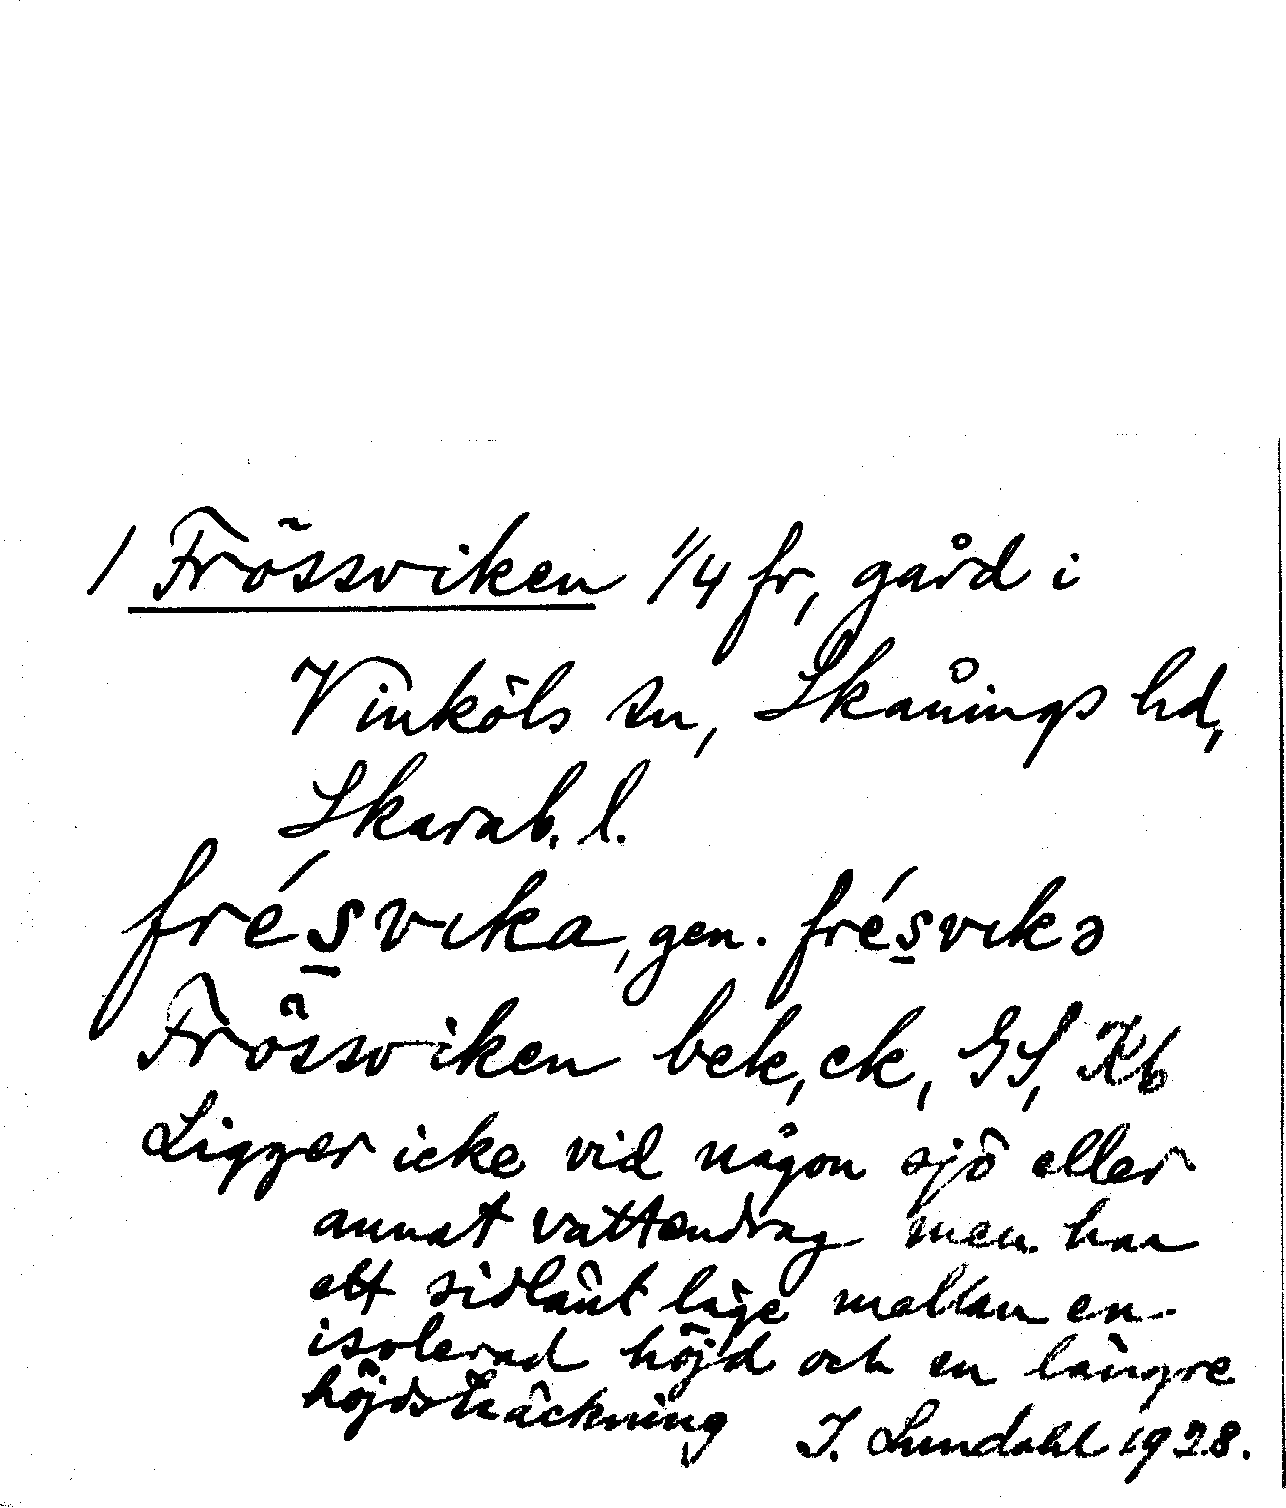 / Frössviken 1/4 fr, gård i
Vinköls sn, Skånings hd,
Skarab. l.
frésvıka, gen. frésvıkə
Frössviken bek, ek, GS, Kb
Ligger icke vid någon sjö eller
annat vattendrag men har
ett sidlänt läge mellan en
isolerad höjd och en längre
höjdsträckning I. Lundahl 1928.